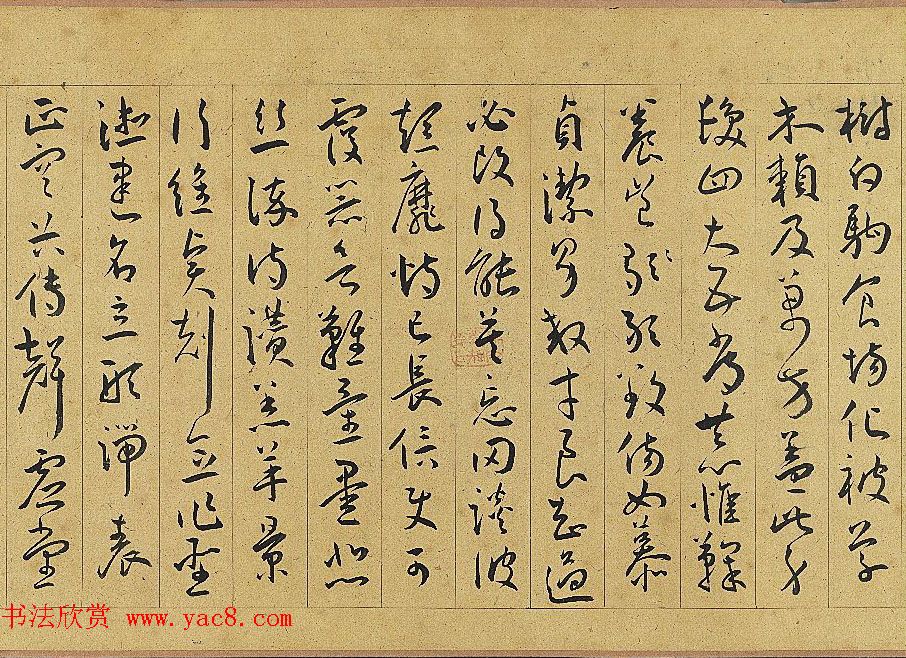 樹白駒食場化被草
木賴及萬方蓋此身
髮四大五常恭惟鞠
養豈敢毀傷女慕
貞潔男效才良知過
必改得能莫忘罔談彼
短靡恃己長信使可
覆器欲難量墨悲
絲染詩讚羔羊景
行維賢剋念作聖
德建名立形端表
正空谷傳聲虛堂
书法欣赏 www.yac8.com